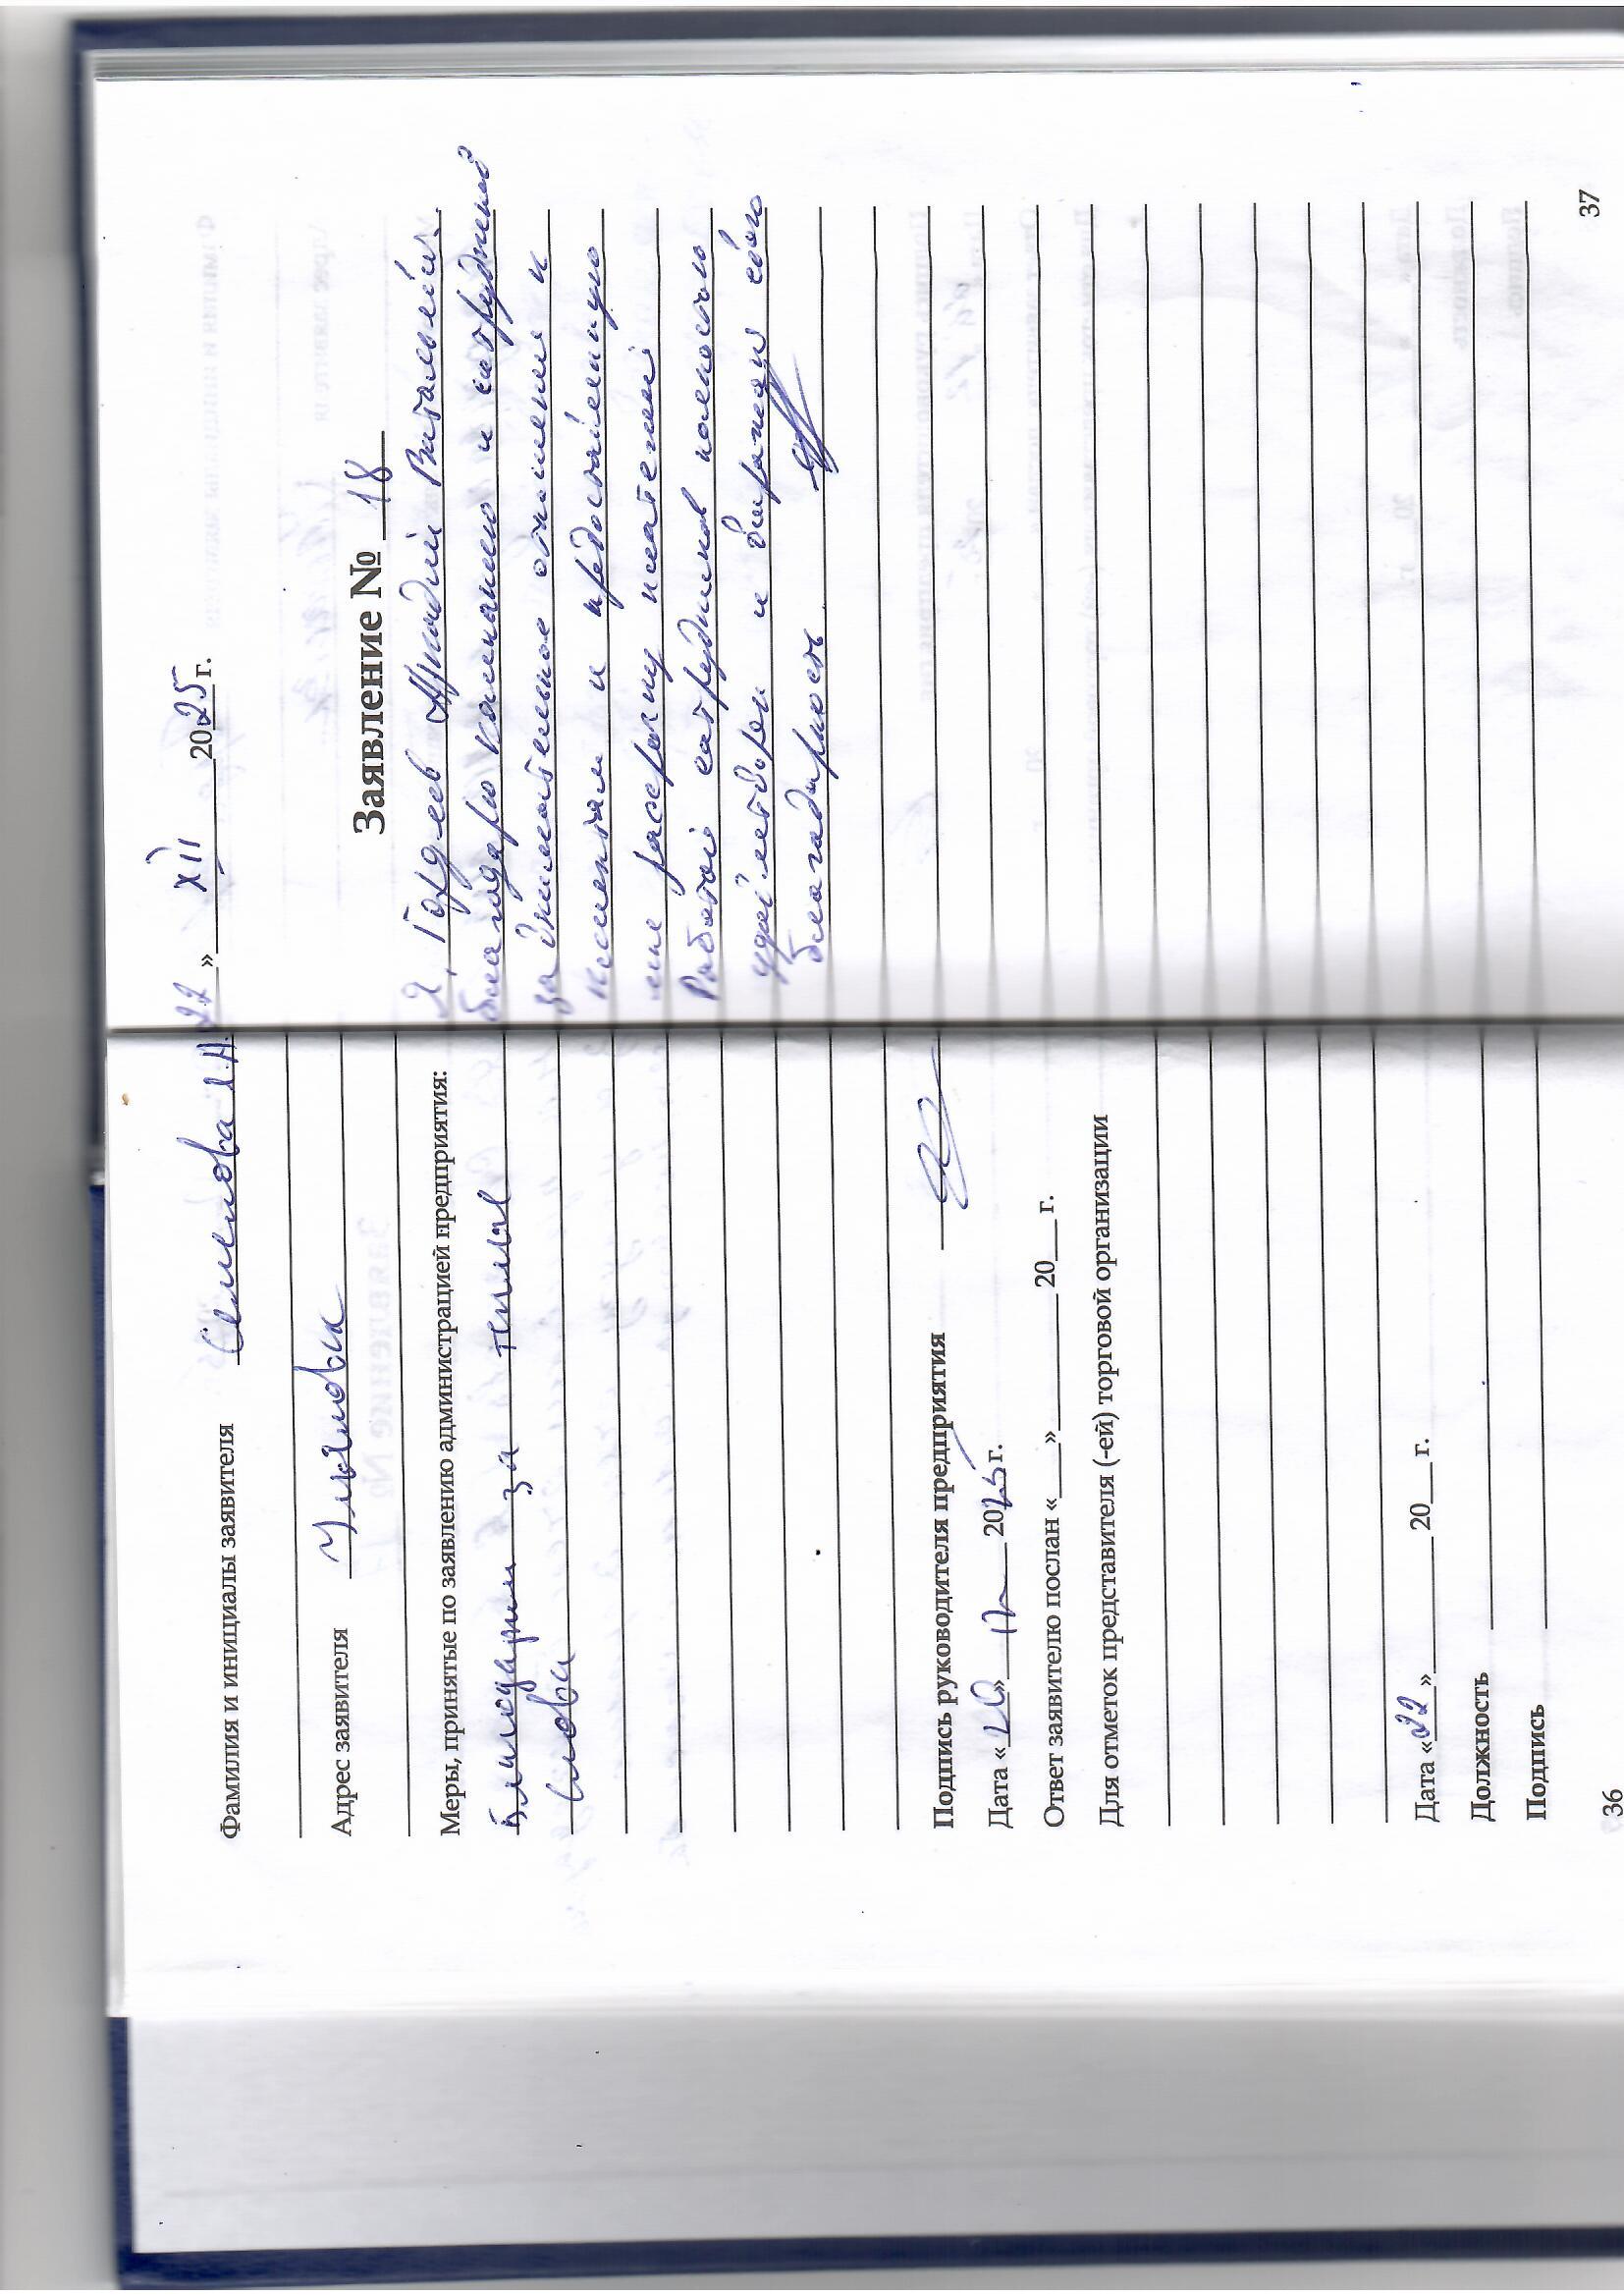 Фамилия и инициалы заявителя Семенова Л.А.
Адрес заявителя
Меры, принятые по заявлению администрацией предприятия:
Благодарим за теплые
слова
Подпись руководителя предприятия
Дата « » 12 2025 г.
Ответ заявителю послан «___» ______ 20__ г.
Для отметок представителя (-ей) торговой организации
Дата «22» ______ 20__ г.
Должность
Подпись
36
«22» XII 2025 г.
Заявление № 18
Я, Гордеев Аркадий Витальевич
благодарю компанию и сотрудников
за внимательное отношение к
клиентам и предоставленную
мне рассрочку платежей
Работой сотрудников полностью
удовлетворен и выражаю свою
благодарность
37